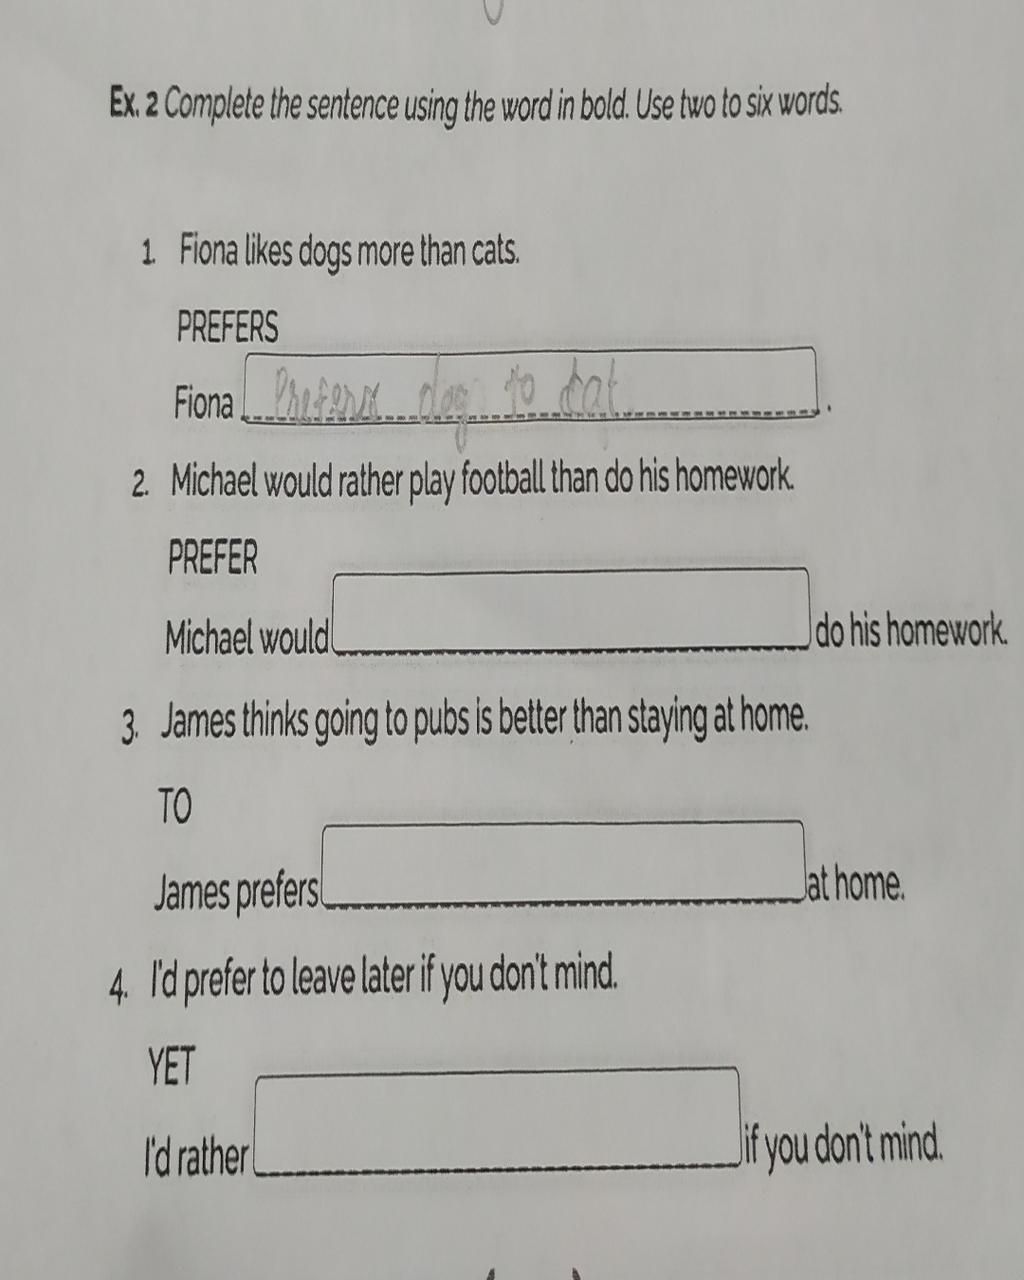 Ex. 2 Complete the sentence using the word in bold. Use two to six words.
1. Fiona likes dogs more than cats.
PREFERS
Fiona Prefers dog to cat.
2. Michael would rather play football than do his homework.
PREFER
Michael would do his homework.
3. James thinks going to pubs is better than staying at home.
TO
James prefers at home.
4. I'd prefer to leave later if you don't mind.
YET
I'd rather if you don't mind.